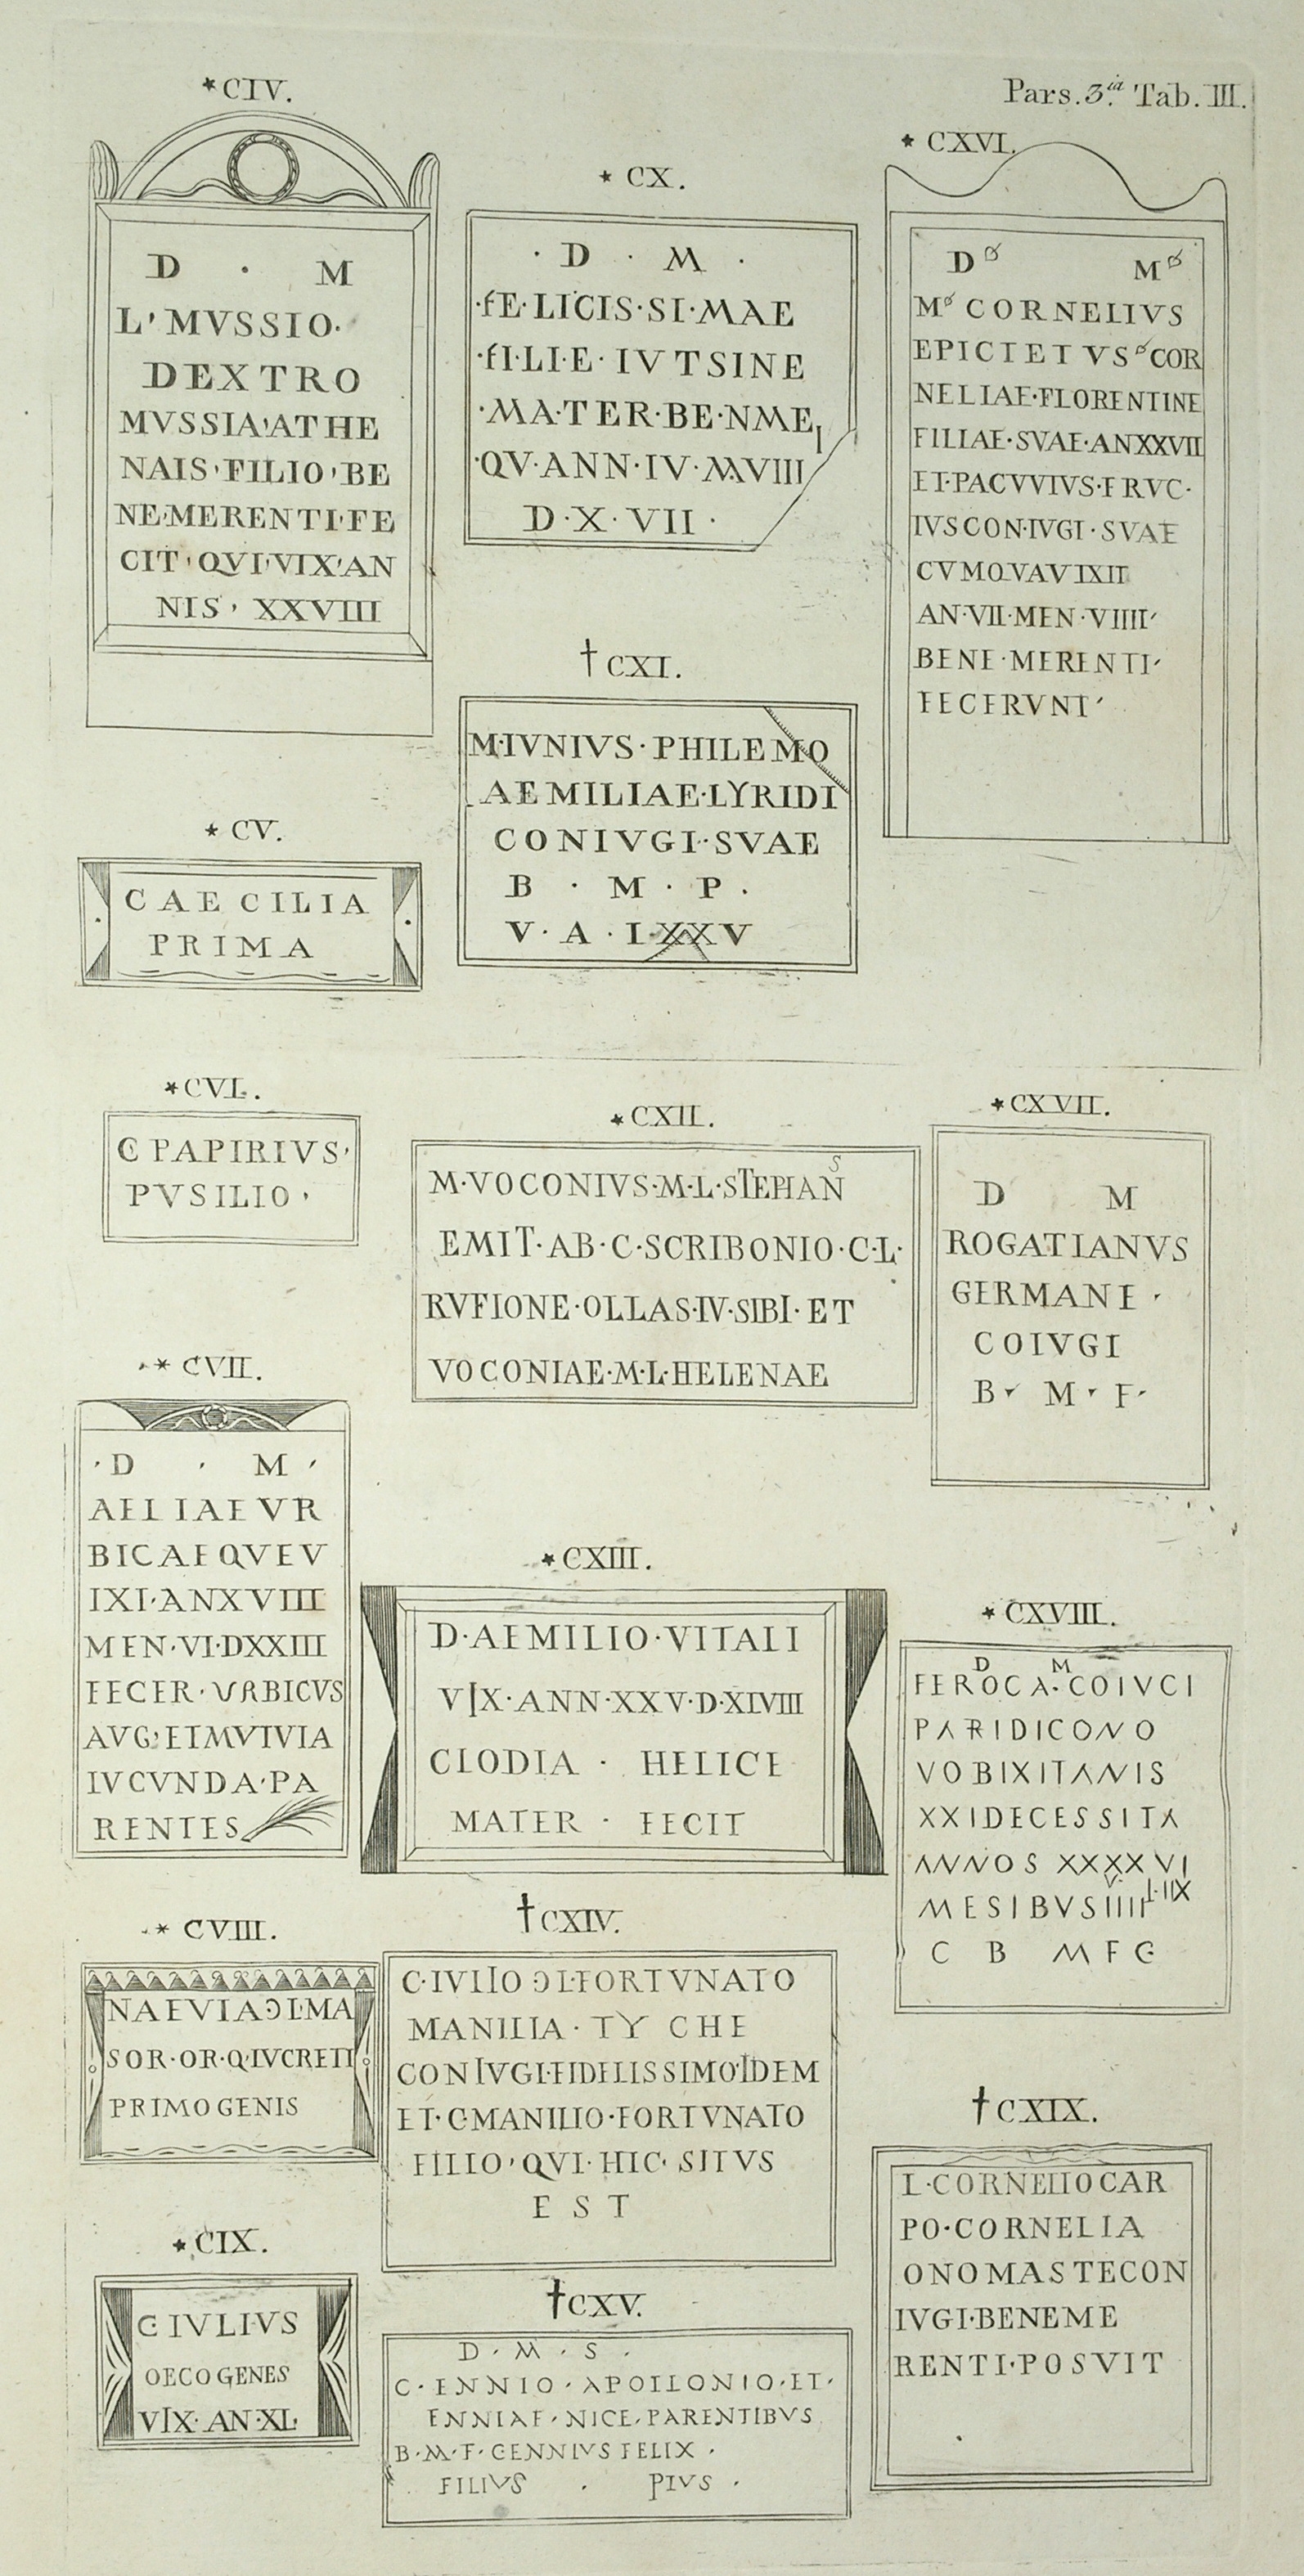 Pars. 3.ia Tab. III.
*CIV.
D · M
L' MVSSIO·
DEXTRO
MVSSIA'ATHE
NAIS'FILIO'BE
NE·MERENTI·FE
CIT'QVI'VIX'AN
NIS' XXVIII
*CV.
CAECILIA
PRIMA
*CVI.
C PAPIRIVS'
PVSILIO'
*CVII.
· D · M ·
AELIAEVR
BICAEQVEV
IXI·ANXVIII
MEN·VI·DXXIII
FECER·VRBICVS
AVG·ETMVTVIA
IVCVNDA·PA
RENTES
*CVIII.
NAEVIAƆL·MA
SOR·OR·Q·LVCRETI
PRIMOGENIS
*CIX.
C IVLIVS
OECOGENES
VIX·AN·XL·
*CX.
· D · M ·
·fE·LICIS·SI·MAE
·fI·LI·E·IVTSINE
·MA·TER·BE·NME
·QV·ANN·IV·M·VIII
D·X·VII·
†CXI.
M·IVNIVS·PHILEMO
AEMILIAE·LYRIDI
CONIVGI·SVAE
B · M · P ·
V · A · LXXV
*CXII.
M·VOCONIVS·M·L·STEPHANS
EMIT·AB·C·SCRIBONIO·C·L·
RVFIONE·OLLAS·IV·SIBI·ET
VOCONIAE·M·L·HELENAE
*CXIII.
D·AEMILIO·VITALI
VIX·ANN·XXV·D·XLVIII
CLODIA · HELICE
MATER · FECIT
†CXIV.
C·IVLIO ƆL·FORTVNATO
MANILIA·TY CHE
CONIVGI·FIDELISSIMO·IDEM
ET·C·MANILIO·FORTVNATO
FILIO'QVI·HIC·SITVS
EST
†CXV.
D · M · S ·
C·ENNIO·APOLLONIO·ET·
ENNIAE·NICE·PARENTIBVS
B·M·F·CENNIVS FELIX·
FILIVS · PIVS ·
*CXVI.
D M
M CORNELIVS
EPICTETVS COR
NELIAE·FLORENTINE
FILIAE·SVAE·ANXXVII
ET·PACVVIVS·FRVC·
IVSCON·IVGI·SVAE
CVMQVAVIXIT
AN·VII·MEN·VIIII'
BENE·MERENTI'
FECERVNT'
*CXVII.
D M
ROGATIANVS
GERMANE·
COIVGI
B· M· F·
*CXVIII.
D M
FEROCA·COIVCI
PARIDICONO
VOBIXITANIS
XXIDECESSITA
ANNOS XXXXVI
MESIBVSIIIII V· L·IIX
C B M F C
†CXIX.
L·CORNELIOCAR
PO·CORNELIA
ONOMASTECON
IVGI·BENEME
RENTI·POSVIT